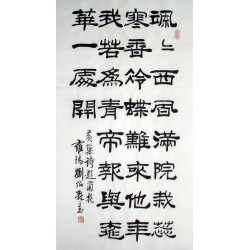 颯々西風滿院栽蕊
寒香冷蝶難來他年
我若為青帝報與桃
華一處開
黃巢詩題菊花